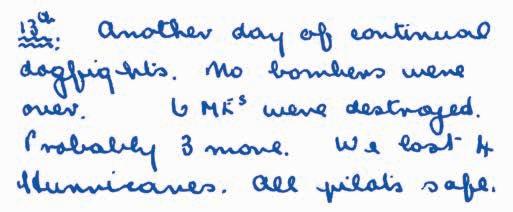 13th. Another day of continual
dogfights. No bombers were
over. 6 MEs were destroyed.
Probably 3 more. We lost 4
Hurricanes. All pilots safe.